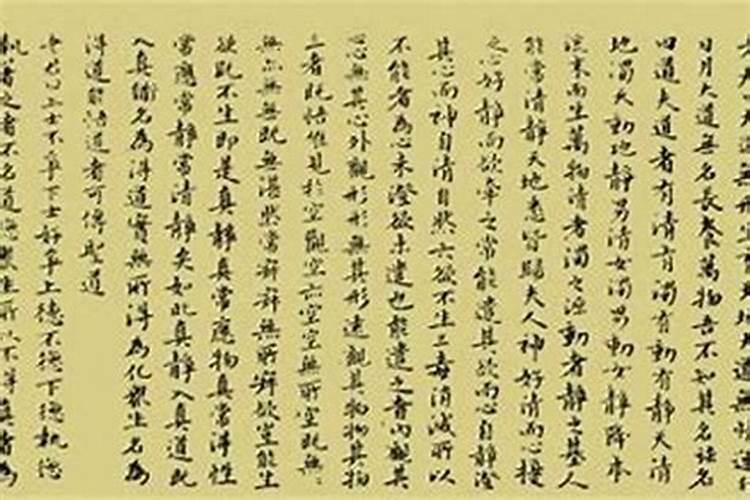 日月大道無名長養萬物吾不知其名強名
曰道夫道者有清有濁有動有靜天清
地濁天動地靜男清女濁男動女靜降本
流末而生萬物清者濁之源動者靜之基人
能常清靜天地悉皆歸夫人神好清而心擾
之心好靜而欲牽之常能遣其欲而心自靜澄
其心而神自清自然六欲不生三毒消滅所以
不能者為心未澄欲未遣也能遣之者內觀其
心無其心外觀形形無其形遠觀其物物其物
三者既悟唯見於空觀空亦空空無所空既無
無亦無無既無湛然常寂寂無所寂欲豈能生
欲既不生即是真靜真常應物真常得性
常應常靜常清靜矣如此真靜入真道既
入真道名為得道實無所得為化眾生名為
得道能悟道者可傳聖道
老君曰上士不爭下士好爭上德不德下德執德
執著之者不名道德眾生所以不得真者為